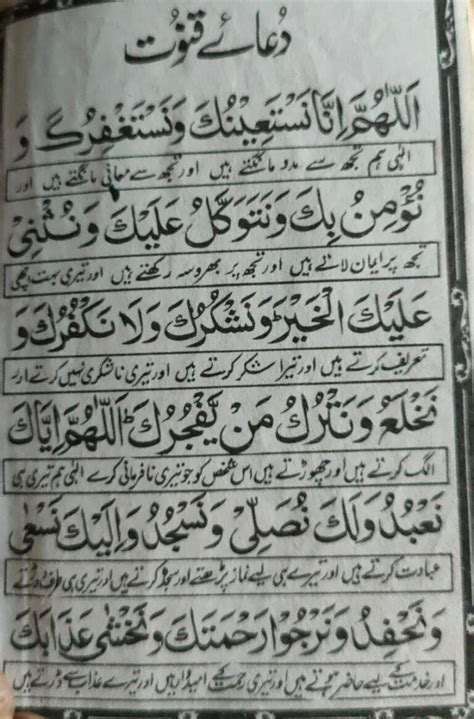 دُعائے قنوُت
اَللّٰهُمَّ اِنَّا نَسْتَعِيْنُكَ وَنَسْتَغْفِرُكَ وَ
الٰہی ہم تجھ سے مدد مانگتے ہیں اور تجھ سے معافی مانگتے ہیں اور
نُؤْمِنُ بِكَ وَنَتَوَكَّلُ عَلَيْكَ وَنُثْنِيْ
تجھ پر ایمان لاتے ہیں اور تجھ پر بھروسہ رکھتے ہیں اور تیری بہت اچھی
عَلَيْكَ الْخَيْرَ وَنَشْكُرُكَ وَلَا نَكْفُرُكَ وَ
تعریف کرتے ہیں اور تیرا شکر کرتے ہیں اور تیری ناشکری نہیں کرتے اور
نَخْلَعُ وَنَتْرُكُ مَنْ يَّفْجُرُكَ اَللّٰهُمَّ اِيَّاكَ
الگ کرتے ہیں اور چھوڑتے ہیں اس شخص کو جو تیری نافرمانی کرے الٰہی ہم تیری ہی
نَعْبُدُ وَلَكَ نُصَلِّيْ وَنَسْجُدُ وَاِلَيْكَ نَسْعٰى
عبادت کرتے ہیں اور تیرے ہی لیے نماز پڑھتے اور سجدہ کرتے ہیں اور تیری ہی طرف دوڑتے
وَنَحْفِدُ وَنَرْجُوْا رَحْمَتَكَ وَنَخْشٰى عَذَابَكَ
اور خدمت کے لیے حاضر ہوتے ہیں اور تیری رحمت کے امیدوار ہیں اور تیرے عذاب سے ڈرتے ہیں